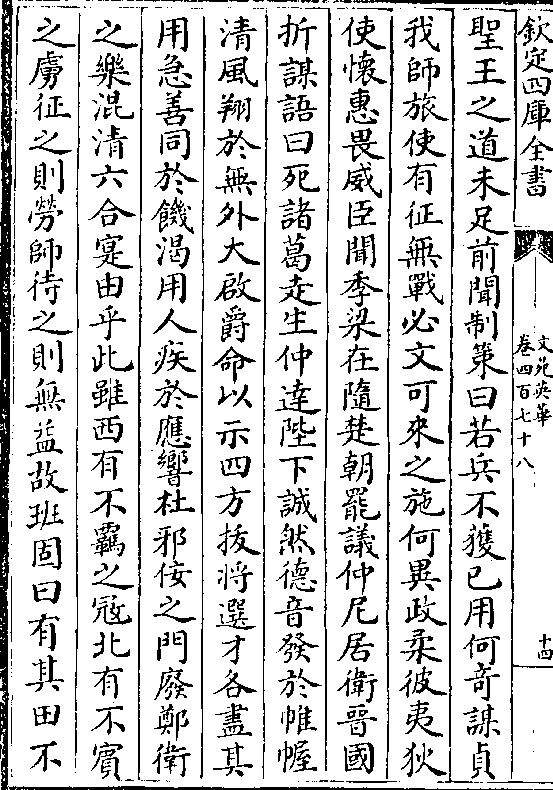 欽定四庫全書
文苑英華
卷四百七十八
十四
聖王之道未足前聞制策曰若兵不獲已用何奇謀貞
我師旅使有征無戰必文可來之施何異政柔彼夷狄
使懷惠畏威臣聞季梁在隨楚朝罷議仲尼居衛晉國
折謀語曰死諸葛走生仲達陛下誠然德音發於帷幄
清風翔於無外大啟爵命以示四方拔將選才各盡其
用急善同於饑渴用人疾於應響杜邪佞之門廢鄭衛
之樂混清六合寔由乎此雖西有不羈之寇北有不賓
之虜征之則勞師待之則無益故班固曰有其田不